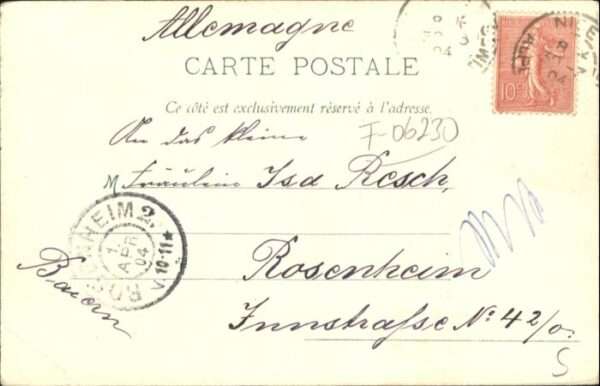 Allemagne
CARTE POSTALE
Ce côté est exclusivement réservé à l'adresse.
An das kleine
F-06230
M Fräulein Isa Resch,
Rosenheim
Innstraße No. 42/0.
Baiern
ROSENHEIM 2.
1.
APR
04
V 10-11 *
10
04
ALPES
5